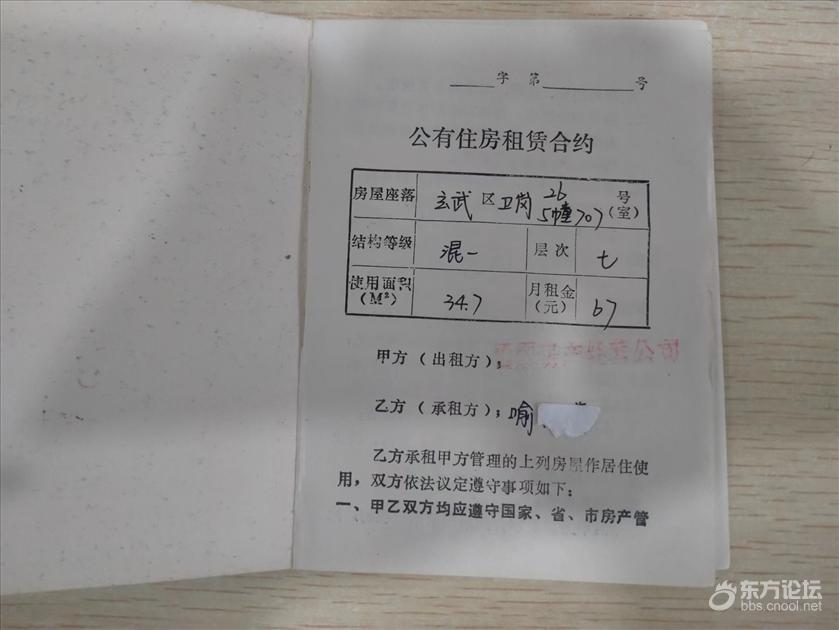 字 第 号
公有住房租赁合约
房屋座落 玄武区卫岗 26 号
5幢707(室)
结构等级 混一 层次 七
使用面积(M²) 34.7 月租金(元) 67
甲方(出租方):
乙方(承租方):喻
乙方承租甲方管理的上列房屋作居住使
用,双方依法议定遵守事项如下:
一、甲乙双方均应遵守国家、省、市房产管
东方论坛
bbs.cnool.net